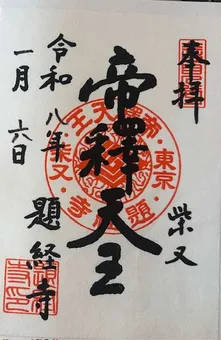 奉拝
柴又
帝釋天王
東京・柴又・題
令和八年
一月六日
題経寺